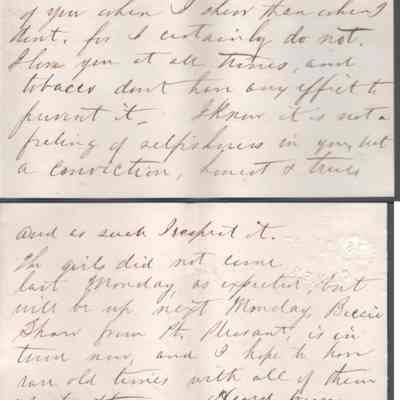 of you when I show than when I
dont, for I certainly do not.
I love you at all times, and
tobacco dont have any effect to
prevent it. I know it is not a
feeling of selfishness in you, but
a conviction, honest & true
and as such I respect it.
The girls did not come
last Monday, as expected, but
will be up next Monday,
Shaw from Mt. Pleasant, is in
town now, and I hope to have
old times with all of them